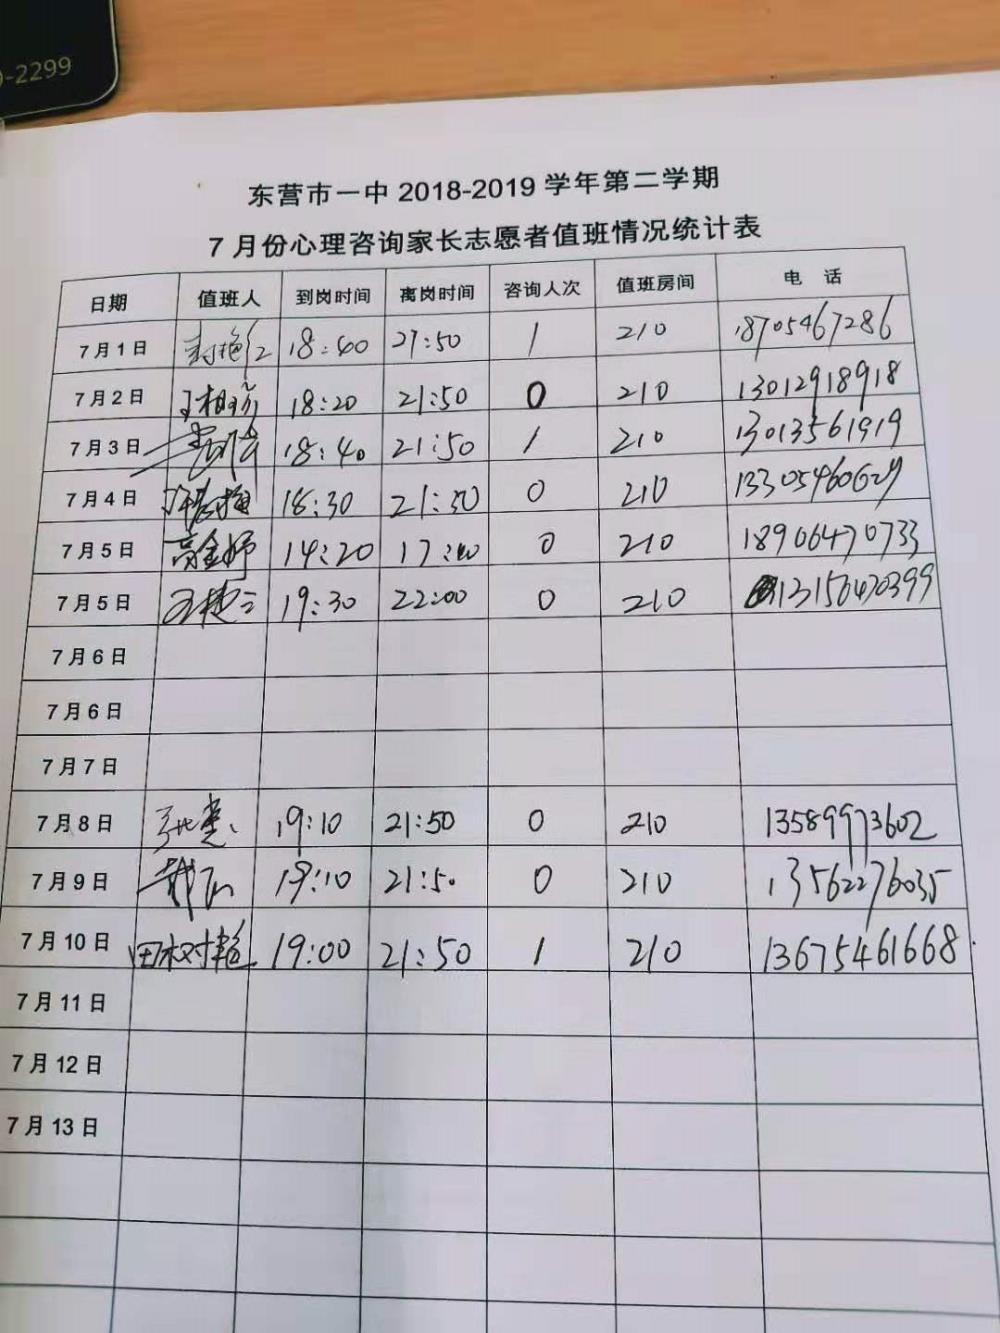 -2299
东营市一中 2018-2019 学年第二学期
7 月份心理咨询家长志愿者值班情况统计表
日期 值班人 到岗时间 离岗时间 咨询人次 值班房间 电 话
7月1日 18:40 21:50 1 210 18705467286
7月2日 18:20 21:50 0 210 13012918918
7月3日 18:40 21:50 1 210 13013561919
7月4日 18:30 21:30 0 210 13305460629
7月5日 14:20 17:00 0 210 18906470733
7月5日 19:30 22:00 0 210 13156470399
7月6日
7月6日
7月7日
7月8日 19:10 21:50 0 210 13589973602
7月9日 19:10 21:50 0 210 13562276035
7月10日 田树艳 19:00 21:50 1 210 13675461668
7月11日
7月12日
7月13日